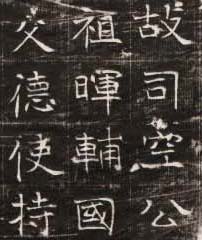 故司空公
祖暉輔國
父德使持